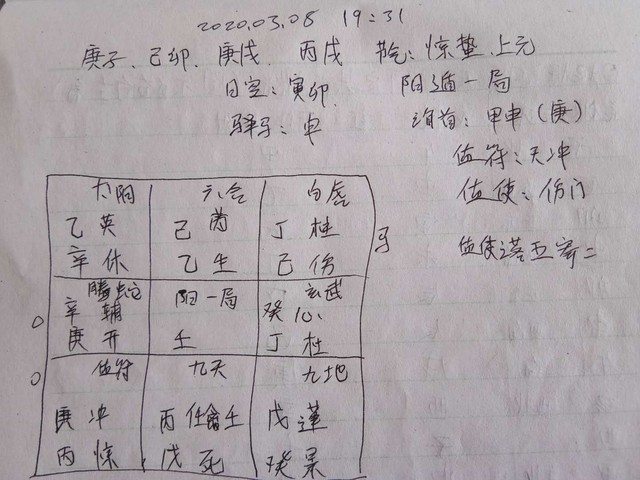 2020.03.08 19:31
庚子、己卯、庚戌、丙戌 节气:惊蛰.上元
日空:寅卯. 阳遁一局
驿马:申 旬首:甲申(庚)
值符:天冲
值使:伤门
值使落五寄二
太阴 六合 白虎
乙英 己芮 丁柱 马
辛休 乙生 己伤
腾蛇 阳一局 玄武
0 辛辅 癸心
庚开 壬 丁杜
0 值符 九天 九地
庚冲 丙任禽壬 戊蓬
丙惊 戊死 癸景